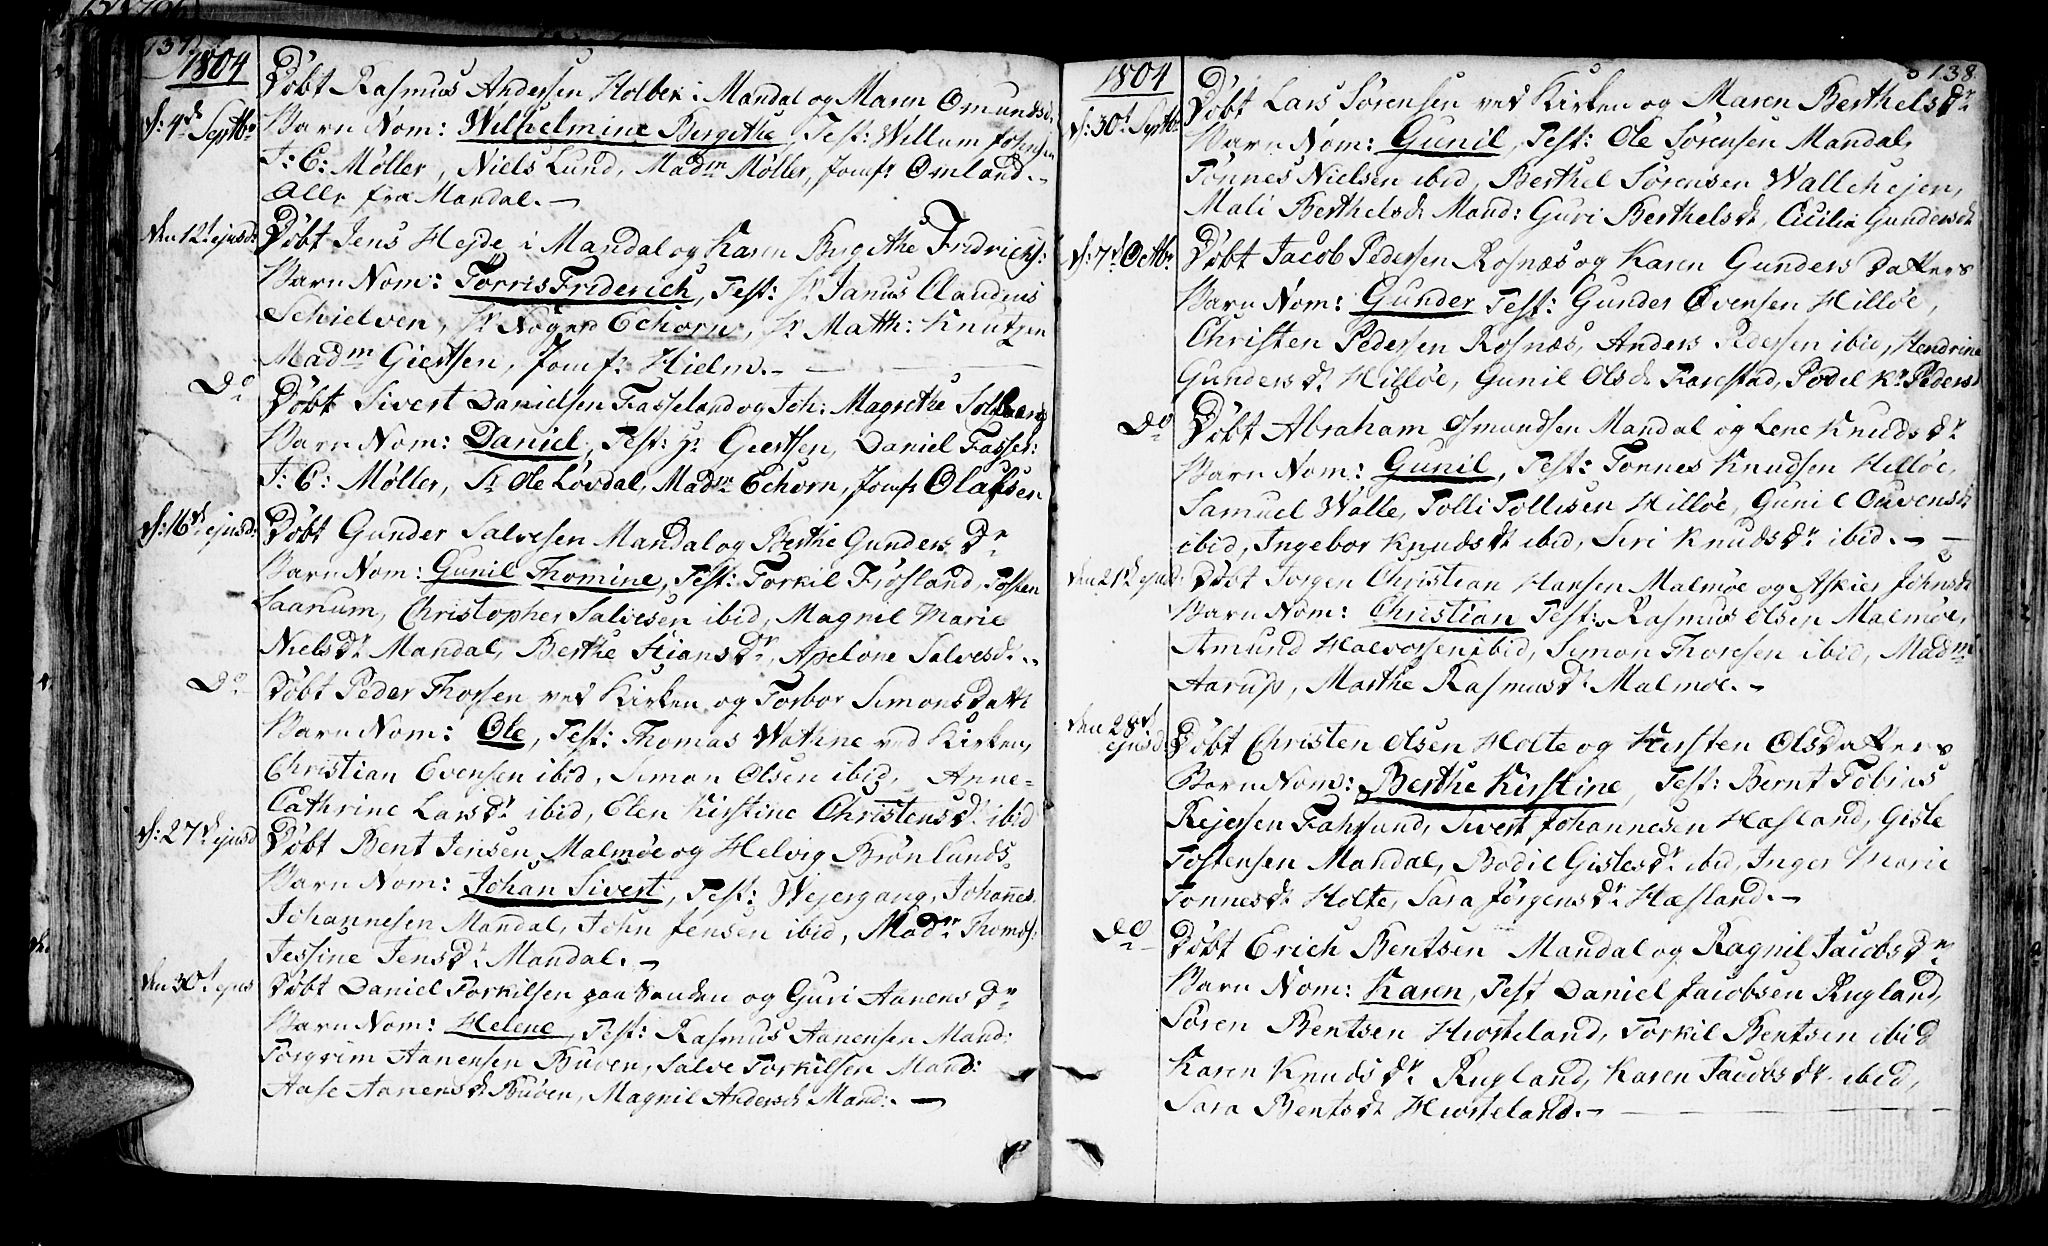 137.
1804
d: 4de Septbr
Døbt Rasmus Andersen Holbek i Mandal og Maren Omundsd.
Barn Nom: Wilhelmine Bergithe, Test: Willum Johnsen
J: C: Møller, Niels Lund, Madm Møller, Jomfr Omland.
Alle fra Mandal. —
den 12t ejusd:
Døbt Jens Hejde i Mandal og Karen Birgithe Fridrichs:
Barn Nom: Torris Friderich, Test: Hr Janus Claudius
Schielven, Hr Echorn, Hr Matth: Knutzen
Madm Giertsen, Jomfr Hielm. —
Do
Døbt Sivert Danielsen Fasseland og Joh: Magrethe Solberg
Barn Nom: Daniel, Test: Hr Giertsen, Daniel Fassel:
J: C: Møller, Sr Ole Løvdal, Madm Echorn, Jomfr Olafsen
d: 16d ejusd:
Døbt Gunder Salvesen Mandal og Berthe Gunders Dr
Barn Nom: Gunil Thomine, Test: Torkil Frøsland, Tosten
Saanum, Christopher Salvesen ibid, Magnil Marie
Niels Dr Mandal, Berthe Dr, Apelone Salvesd.
Do
Døbt Peder Thorsen ved Kirken og Torbor Simonsdatt
Barn Nom: Ole, Test: Thomas Wathne ved Kirken,
Christian Evensen ibid, Simon Olsen ibid, Anne-
Cathrine Lars Dr ibid, Elen Kirstine Christens Dr ibid
d: 27d ejusd
Døbt Bent Jensen Malmøe og Helvig Brønlunds
Barn Nom: Johan Sivert, Test: Wejergang, Johannes
Johannesen Mandal, John Jensen ibid, Madm Thoms:
Jessine Jens Dr Mandal. —
den 30t ejus
Døbt Daniel Torkilsen paa Sanden og Guri Aanens Dr
Barn Nom: Helene, Test: Rasmus Aanensen Mand:
Torgrim Aanensen Buven, Salve Torkilsen Mand:
Aase Aanens Dr Buven, Magnil Andersd Mand: —
1804
138
d: 30t Septbr
Døbt Lars Sørensen ved Kirken og Maren Berthels Dr
Barn Nom: Gunil, Test: Ole Sørensen Mandal,
Tønnes Nielsen ibid, Berthel Sørensen Wallehejen,
Mali Berthelsd Mand: Guri Berthelsd, Cicilia Gundersd
d: 7d Octbr
Døbt Jacob Pedersen Rosnæs og Karen Gunders Datters
Barn Nom: Gunder Test: Gunder Ovensen Hilløe,
Christen Pedersen Rosnæs, Anders Pedersen ibid, Hendrine
Gunders Dr Hilløe, Gunil Ols Dr Farestad, Bodel Kr Pedersd
Do
Døbt Abraham Osmundsen Mandal og Lene Knuds Dr
Barn Nom: Gunil, Test: Tønnes Knudsen Hilløe,
Samuel Walle, Tolli Tollisen Hilløe, Gunil Ouvensd
ibid, Ingebor Knuds Dr ibid, Siri Knuds Dr ibid. —
den 21d ejusd:
Døbt Jørgen Christian Hansen Malmøe og Askier Johnsd
Barn Nom: Christian Test: Rasmus Olsen Malmøe,
Amund Halvorsen ibid, Simon Thoresen ibid, Madm
Aarup, Marthe Rasmus Dr Malmøe. —
den 28d
ejusd:
Døbt Christen Olsen Holte og Kirsten Olsdatters
Barn Nom: Berthe Kirstine, Test: Bernt Tobias
Rejersen Fahrsund, Sivert Johannesen Hæsland, Gisle
Tostensen Mandal, Bodil Gisles Dr ibid, Inger Marie
Tønnes Dr Holte, Sara Jørgens Dr Hæsland. —
Do
Døbt Erich Bentsen Mandal og Ragnil Jacobs Dr
Barn Nom: Karen, Test Daniel Jacobsen Rugland,
Søren Bentsen Hiorteland, Torkil Bentsen ibid
Karen Knuds Dr Rugland, Karen Jacobs Dr ibid,
Sara Bents Dr Hiorteland. —